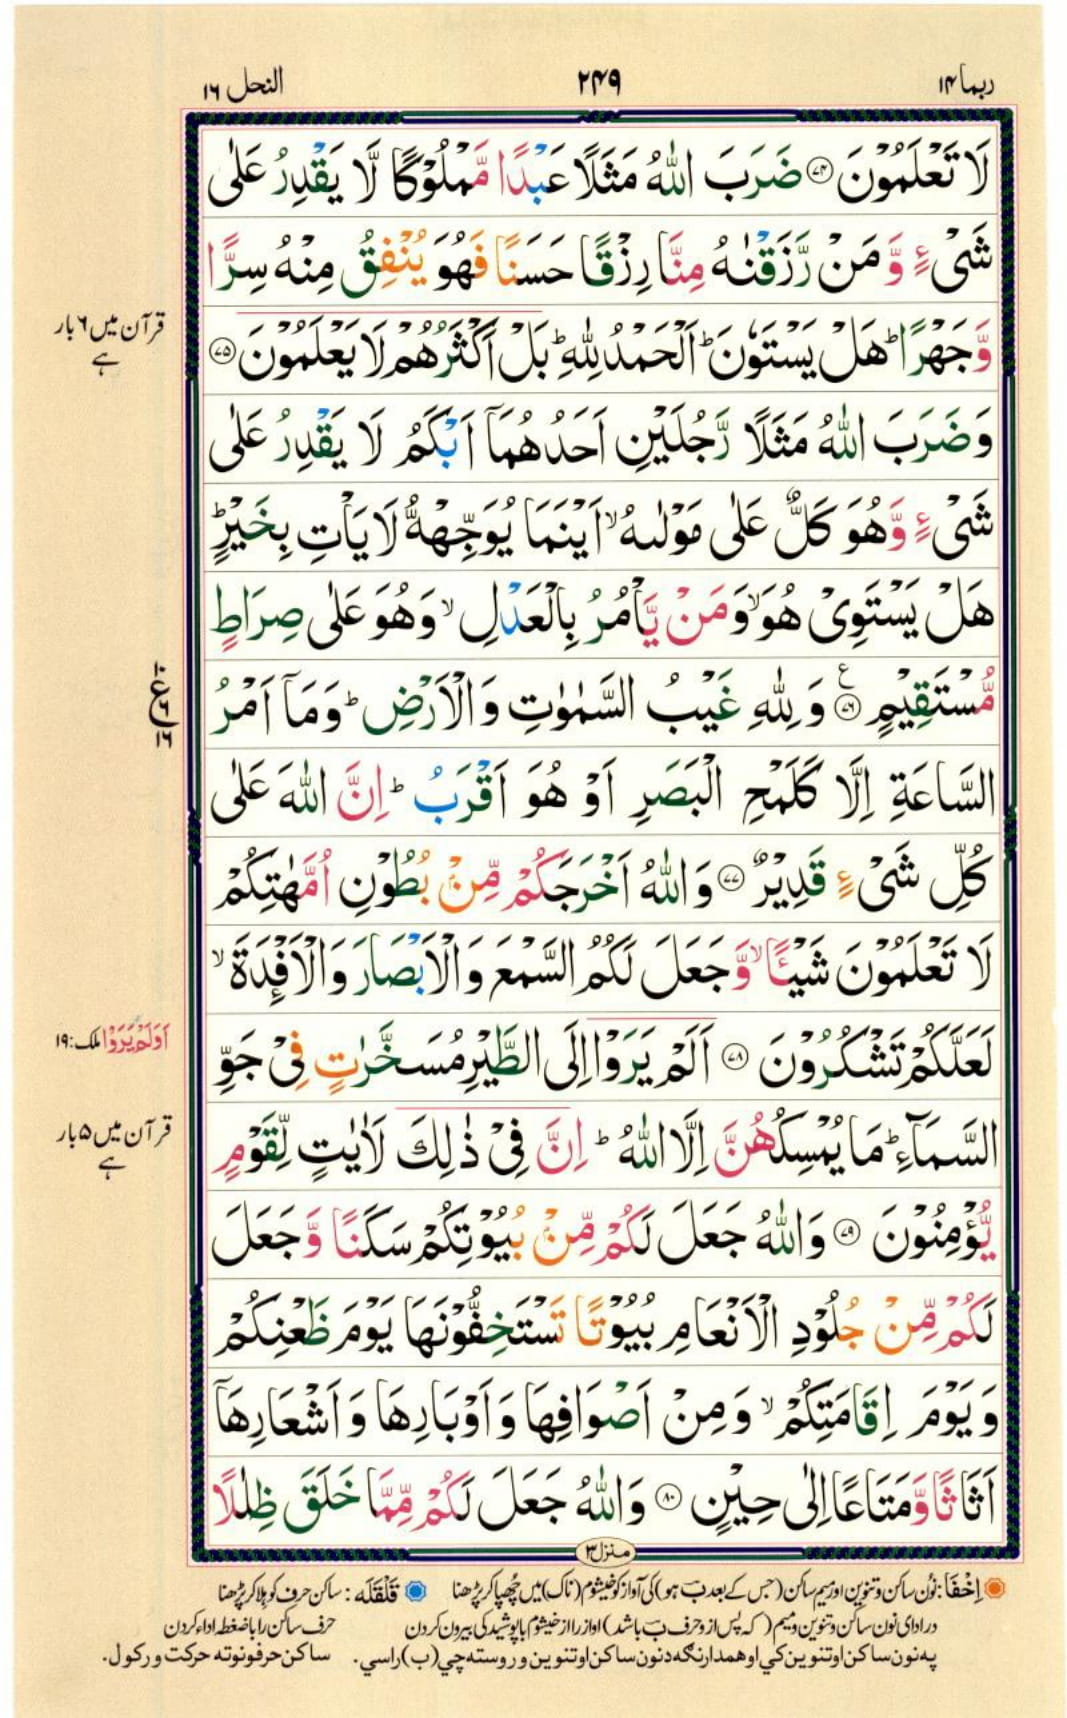 ربما ۱۴
۲۴۹
النحل ۱۶
لَا تَعْلَمُوْنَ ﴿۷۴﴾ ضَرَبَ اللّٰهُ مَثَلًا عَبْدًا مَّمْلُوْكًا لَّا يَقْدِرُ عَلٰى
شَىْءٍ وَّ مَنْ رَّزَقْنٰهُ مِنَّا رِزْقًا حَسَنًا فَهُوَ يُنْفِقُ مِنْهُ سِرًّا
وَّ جَهْرًا ؕ هَلْ يَسْتَوٗنَ ؕ اَلْحَمْدُ لِلّٰهِ ؕ بَلْ اَكْثَرُهُمْ لَا يَعْلَمُوْنَ ﴿۷۵﴾
قرآن میں ۶ بار
ہے
وَ ضَرَبَ اللّٰهُ مَثَلًا رَّجُلَيْنِ اَحَدُهُمَاۤ اَبْكَمُ لَا يَقْدِرُ عَلٰى
شَىْءٍ وَّ هُوَ كَلٌّ عَلٰى مَوْلٰىهُ ۙ اَيْنَمَا يُوَجِّهْهُّ لَا يَاْتِ بِخَيْرٍ ؕ
هَلْ يَسْتَوِىْ هُوَ ۙ وَ مَنْ يَّاْمُرُ بِالْعَدْلِ ۙ وَ هُوَ عَلٰى صِرَاطٍ
مُّسْتَقِيْمٍ ﴿۷۶﴾ ع وَ لِلّٰهِ غَيْبُ السَّمٰوٰتِ وَ الْاَرْضِ ؕ وَ مَاۤ اَمْرُ
۱۰
ع ۶
۱۶
السَّاعَةِ اِلَّا كَلَمْحِ الْبَصَرِ اَوْ هُوَ اَقْرَبُ ؕ اِنَّ اللّٰهَ عَلٰى
كُلِّ شَىْءٍ قَدِيْرٌ ﴿۷۷﴾ وَ اللّٰهُ اَخْرَجَكُمْ مِّنْۢ بُطُوْنِ اُمَّهٰتِكُمْ
لَا تَعْلَمُوْنَ شَيْـًٔا ۙ وَّ جَعَلَ لَكُمُ السَّمْعَ وَ الْاَبْصَارَ وَ الْاَفْـِٕدَةَ ۙ
لَعَلَّكُمْ تَشْكُرُوْنَ ﴿۷۸﴾ اَلَمْ يَرَوْا اِلَى الطَّيْرِ مُسَخَّرٰتٍ فِىْ جَوِّ
اَوَلَمْ يَرَوْا ملک: ۱۹
السَّمَآءِ ؕ مَا يُمْسِكُهُنَّ اِلَّا اللّٰهُ ؕ اِنَّ فِىْ ذٰلِكَ لَاٰيٰتٍ لِّقَوْمٍ
قرآن میں ۵ بار
ہے
يُّؤْمِنُوْنَ ﴿۷۹﴾ وَ اللّٰهُ جَعَلَ لَكُمْ مِّنْۢ بُيُوْتِكُمْ سَكَنًا وَّ جَعَلَ
لَكُمْ مِّنْ جُلُوْدِ الْاَنْعَامِ بُيُوْتًا تَسْتَخِفُّوْنَهَا يَوْمَ ظَعْنِكُمْ
وَ يَوْمَ اِقَامَتِكُمْ ۙ وَ مِنْ اَصْوَافِهَا وَ اَوْبَارِهَا وَ اَشْعَارِهَاۤ
اَثَاثًا وَّ مَتَاعًا اِلٰى حِيْنٍ ﴿۸۰﴾ وَ اللّٰهُ جَعَلَ لَكُمْ مِّمَّا خَلَقَ ظِلٰلًا
منزل ۳
اِخْفَا: نُون ساکن و تنوین اور میم ساکن (جس کے بعد ب ہو) کی آواز کو خیشوم (ناک) میں چھپا کر پڑھنا قَلْقَلَه: ساکن حرف کو ہلا کر پڑھنا
در ادای نون ساکن و تنوین و میم (که پس از و حرف ب باشد) اواز را از خیشوم با پوشیدگی بیرون کردن حرف ساکن را با ضغطه اداء کردن
په نون ساکن او تنوین کي او همدارنګه د نون ساکن او تنوین وروسته چي (ب) راسي. ساکن حرفونو ته حرکت ورکول.